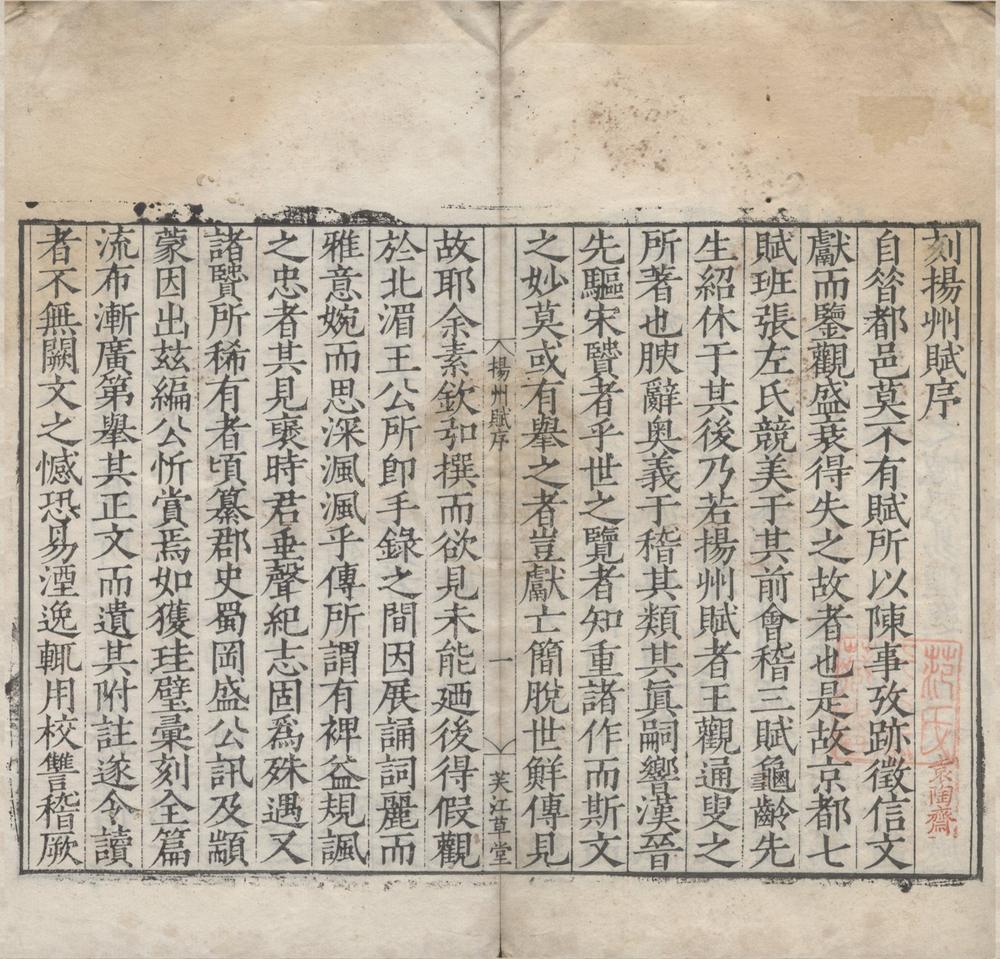 刻揚州賦序
自昝都邑莫不有賦所以陳事攷跡徵信文
獻而鑒觀盛衰得失之故者也是故京都七
賦班張左氏競美于其前會稽三賦龜齡先
生紹休于其後乃若揚州賦者王觀通叟之
所著也腴辭奥義于稽其類其眞嗣響漢晉
先驅宋賢者乎世之覽者知重諸作而斯文
之妙莫或有舉之者豈獻亡簡脫世鮮傳見
揚州賦序
一
芙江草堂
故耶余素欽弘撰而欲見未能廼後得假觀
於北湄王公所卽手錄之間因展誦詞麗而
雅意婉而思深渢渢乎傳所謂有裨益規諷
之忠者其見褒時君垂聲紀志固爲殊遇又
諸賢所稀有者頃纂郡史蜀岡盛公訊及顓
蒙因出茲編公忻賞焉如獲珪璧彙刻全篇
流布漸廣第舉其正文而遺其附註遂令讀
者不無闕文之憾恐易湮逸輒用校讐稽厥
袁陶齋